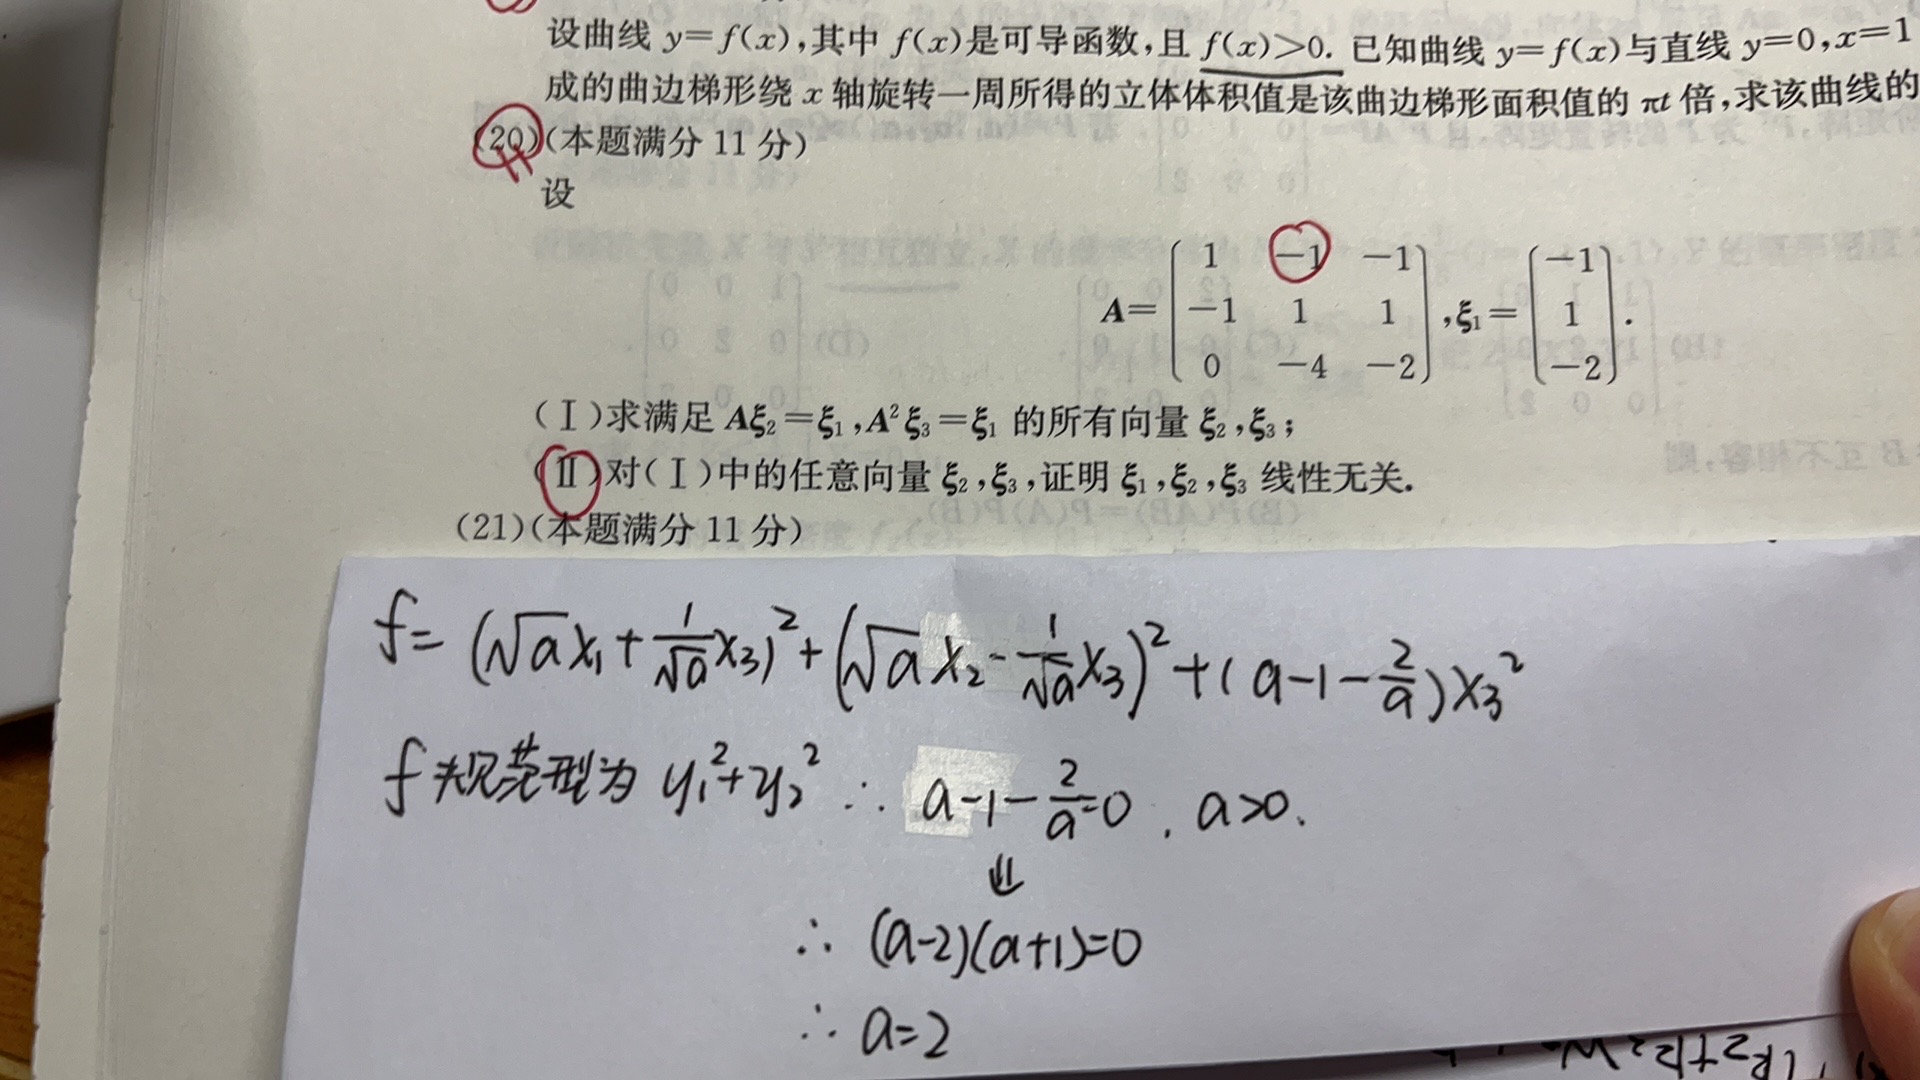 设曲线 y=f(x),其中 f(x)是可导函数,且 f(x)>0. 已知曲线 y=f(x)与直线 y=0,x=1
成的曲边梯形绕 x 轴旋转一周所得的立体体积值是该曲边梯形面积值的 πt 倍,求该曲线的
(20)(本题满分 11 分)
设
A=[1 −1 −1; −1 1 1; 0 −4 −2],ξ₁=[−1; 1; −2].
(Ⅰ)求满足 Aξ₂=ξ₁,A²ξ₃=ξ₁ 的所有向量 ξ₂,ξ₃;
(Ⅱ)对(Ⅰ)中的任意向量 ξ₂,ξ₃,证明 ξ₁,ξ₂,ξ₃ 线性无关.
(21)(本题满分 11 分)
f=(√a x₁+1/√a x₃)²+(√a x₂-1/√a x₃)²+(a-1-2/a)x₃²
f规范型为 y₁²+y₂² ∴ a-1-2/a=0 , a>0.
⇓
∴ (a-2)(a+1)=0
∴ a=2